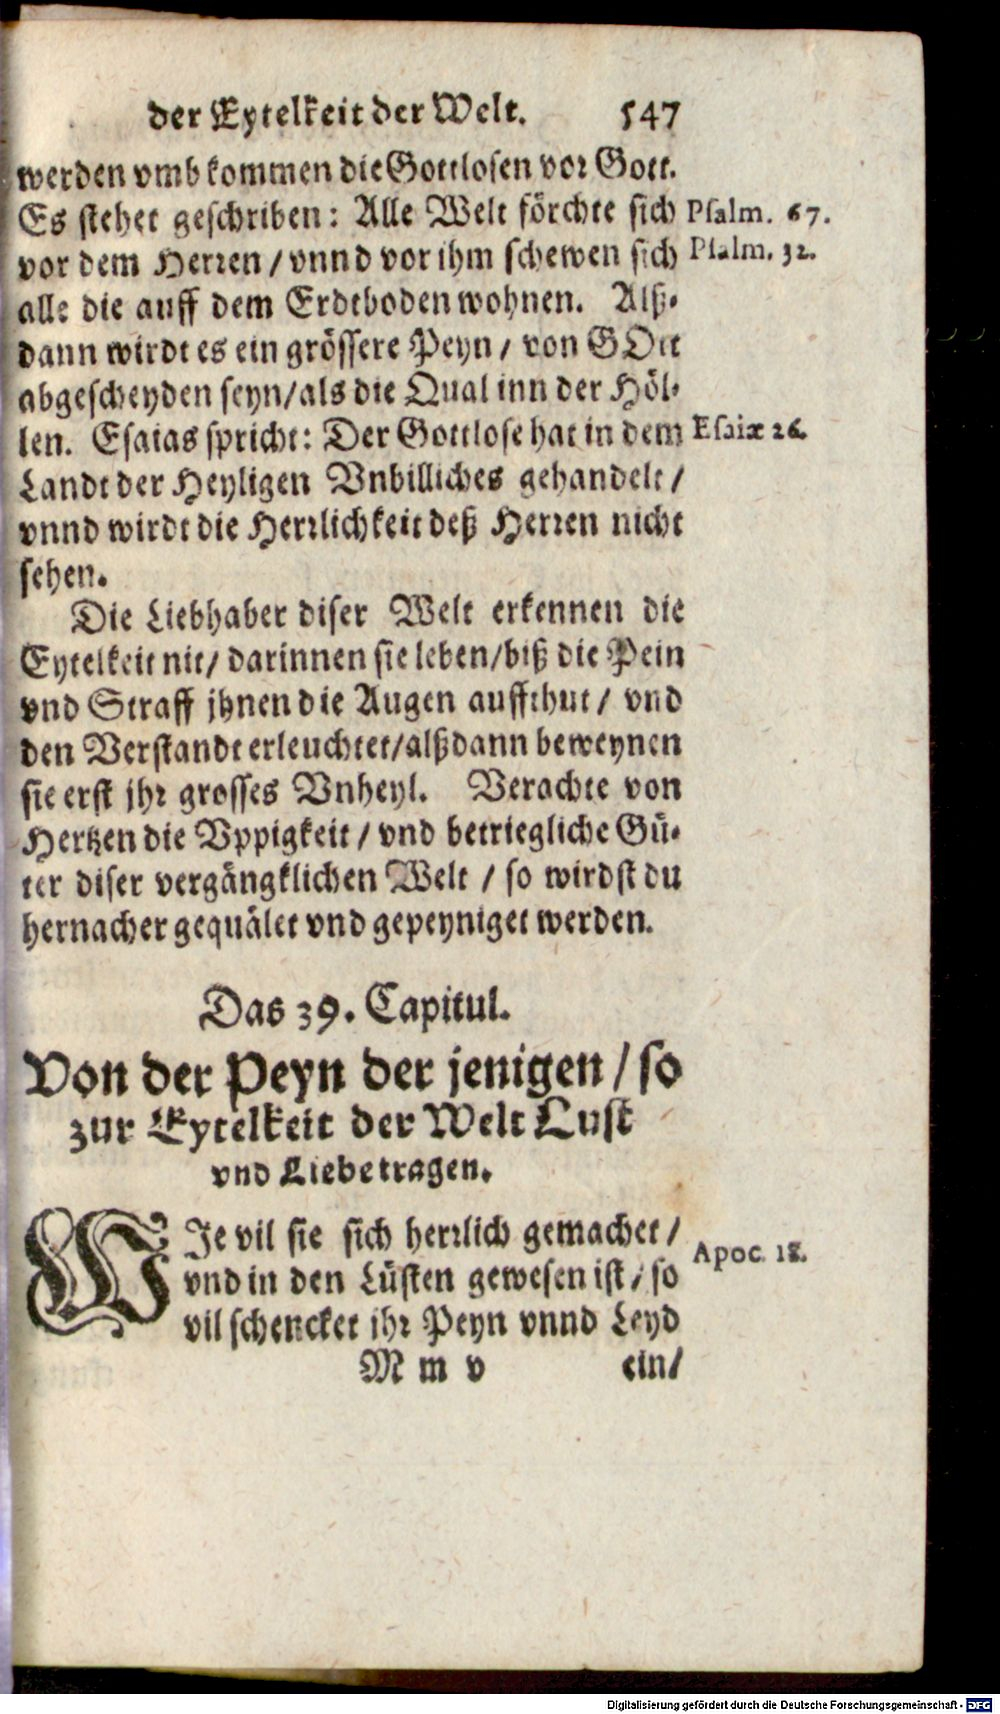 der Eytelkeit der Welt. 547
werden vmb kommen die Gottlosen vor Gott.
Es stehet geschriben: Alle Welt förchte sich Psalm. 67.
vor dem Herren / vnnd vor ihm schewen sich Psalm. 32.
alle die auff dem Erdtboden wohnen. Alß-
dann wirdt es ein grössere Peyn / von GOtt
abgescheyden seyn/als die Qual inn der Höl-
len. Esaias spricht: Der Gottlose hat in dem Esaiæ 26.
Landt der Heyligen Vnbilliches gehandelt /
vnnd wirdt die Herrlichkeit deß Herren nicht
sehen.
Die Liebhaber diser Welt erkennen die
Eytelkeit nit/ darinnen sie leben/biß die Pein
vnd Straff jhnen die Augen auffthut / vnd
den Verstandt erleuchtet/alßdann beweynen
sie erst jhr grosses Vnheyl. Verachte von
Hertzen die Vppigkeit / vnd betriegliche Gü-
ter diser vergängklichen Welt / so wirdst du
hernacher gequälet vnd gepeyniget werden.
Das 39. Capitul.
Von der Peyn der jenigen / so
zur Eytelkeit der Welt Lust
vnd Liebe tragen.
WJe vil sie sich herrlich gemachet / Apoc. 18.
vnd in den Lüsten gewesen ist / so
vil schencket ihr Peyn vnnd Leyd
M m v ein/
Digitalisierung gefördert durch die Deutsche Forschungsgemeinschaft - DFG